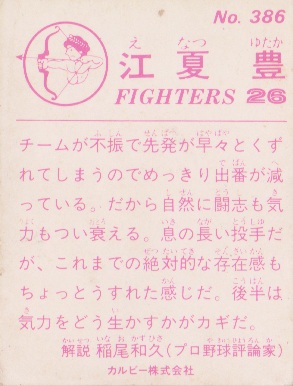 No. 386
えなつ ゆたか
江夏 豊
FIGHTERS 26
チームが不振で先発が早々とくず
れてしまうのでめっきり出番が減
っている。だから自然に闘志も気
力もつい衰える。息の長い投手だ
が、これまでの絶対的な存在感も
ちょっとうすれた感じだ。後半は
気力をどう生かすかがカギだ。
解説 稲尾和久(プロ野球評論家)
カルビー株式会社